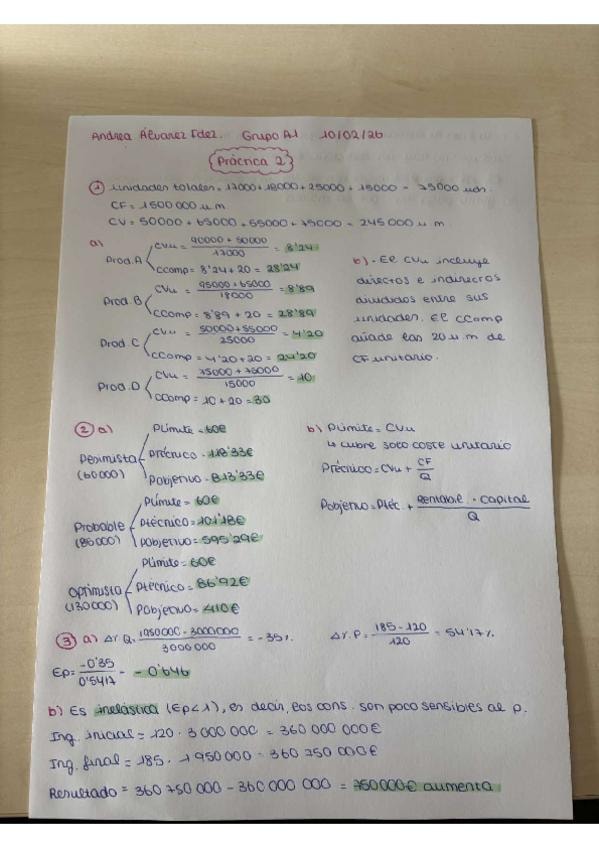 Andrea Álvarez Fdez. Grupo A1 10/02/26
Práctica 2
① Unidades totales = 17000 + 18000 + 25000 + 15000 = 75000 uds.
CF = 1500 000 u.m.
CV = 50000 + 65000 + 55000 + 75000 = 245 000 u.m.
a)
Prod. A
CVu = 90000 + 50000 / 17000 = 8'24
CComp = 8'24 + 20 = 28'24
Prod. B
CVu = 95000 + 65000 / 18000 = 8'89
CComp = 8'89 + 20 = 28'89
Prod. C
CVu = 50000 + 55000 / 25000 = 4'20
CComp = 4'20 + 20 = 24'20
Prod. D
CVu = 75000 + 75000 / 15000 = 10
CComp = 10 + 20 = 30
b) · El CVu incluye
directos e indirectos
divididos entre sus
unidades. El CComp
añade las 20 u.m de
CF unitario.
② a)
Pesimista
(60000)
PLímite = 60€
Ptécnico = 118'33€
Pobjetivo = 813'33€
Probable
(85000)
PLímite = 60€
Ptécnico = 101'18€
Pobjetivo = 595'29€
Optimista
(130000)
PLímite = 60€
Ptécnico = 86'92€
Pobjetivo = 410€
b) PLímite = CVu
↳ cubre solo coste unitario
Ptécnico = CVu + CF / Q
Pobjetivo = Ptéc. + Rentable · Capital / Q
③ a) Δr Q = 1950000 - 3000000 / 3000000 = -35%
Δr. P = 185 - 120 / 120 = 54'17%
Ep = -0'35 / 0'5417 = -0'646
b) Es inelástica (Ep<1), es decir, los cons. son poco sensibles al p.
Ing. inicial = 120 · 3 000 000 = 360 000 000€
Ing. final = 185 · 1 950 000 = 360 750 000€
Resultado = 360 750 000 - 360 000 000 = 750000€ aumenta